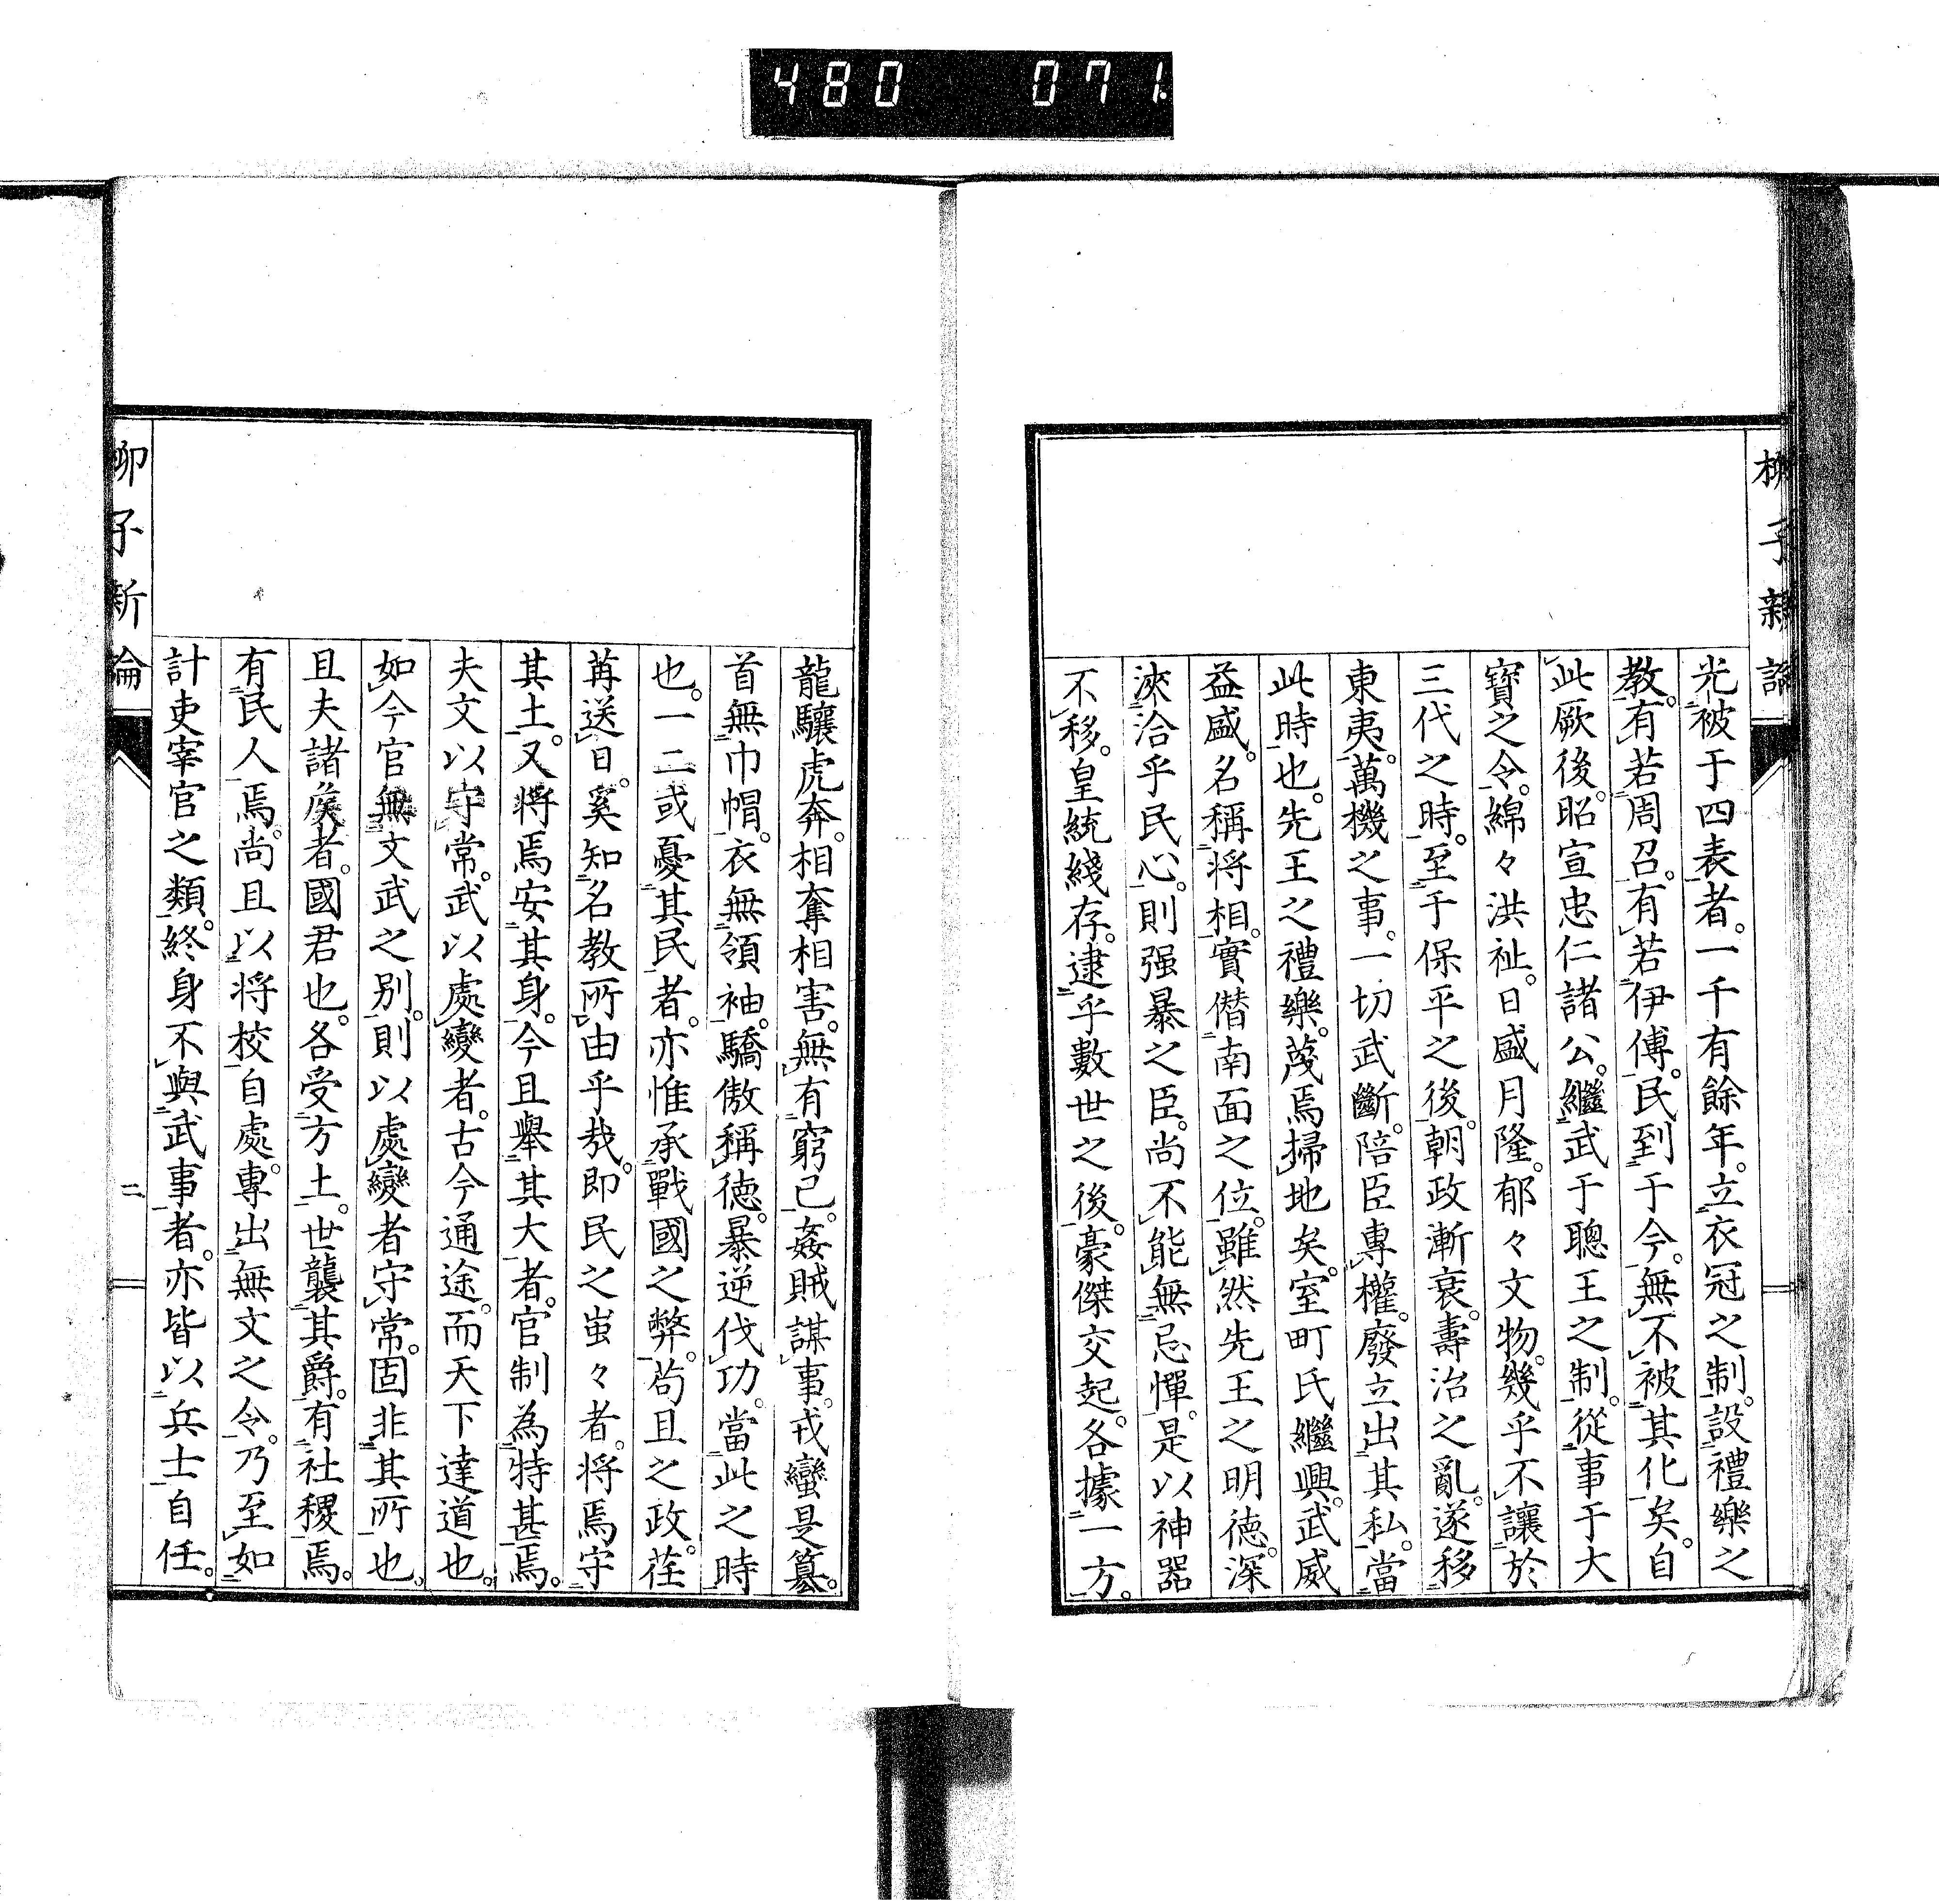 480 071.
柳子新論
光被于四表者。一千有餘年。立衣冠之制。設禮樂之
教。有若周召。有若伊傅。民到于今。無不被其化矣。自
此厥後。昭宣忠仁諸公。繼武于聰王之制。從事于大
寶之令。綿々洪祉。日盛月隆。郁々文物。幾乎不讓於
三代之時。至于保平之後。朝政漸衰。壽治之亂。遂移
東夷。萬機之事。一切武斷。陪臣專權。廢立出其私。當
此時也。先王之禮樂。蔑焉掃地矣。室町氏繼興。武威
益盛。名稱將相。實僭南面之位。雖然先王之明德。深
浹洽乎民心。則强暴之臣。尚不能無忌憚。是以神器
不移。皇統綫存。逮乎數世之後。豪傑交起。各據一方。
龍驤虎奔。相奪相害。無有窮已。姦賊謀事。戎蠻是簒。
首無巾帽。衣無領袖。驕傲稱德。暴逆伐功。當此之時
也。一二或憂其民者。亦惟承戰國之弊。苟且之政。荏
苒送日。奚知名教所由乎哉。即民之蚩々者。將焉守
其土。又將焉安其身。今且舉其大者。官制為特甚焉。
夫文以守常。武以處變者。古今通途。而天下達道也。
如今官無文武之別。則以處變者守常。固非其所也。
且夫諸侯者。國君也。各受方土。世襲其爵。有社稷焉。
有民人焉。尚且以將校自處。專出無文之令。乃至如
計吏宰官之類。終身不與武事者。亦皆以兵士自任。
柳子新論
二